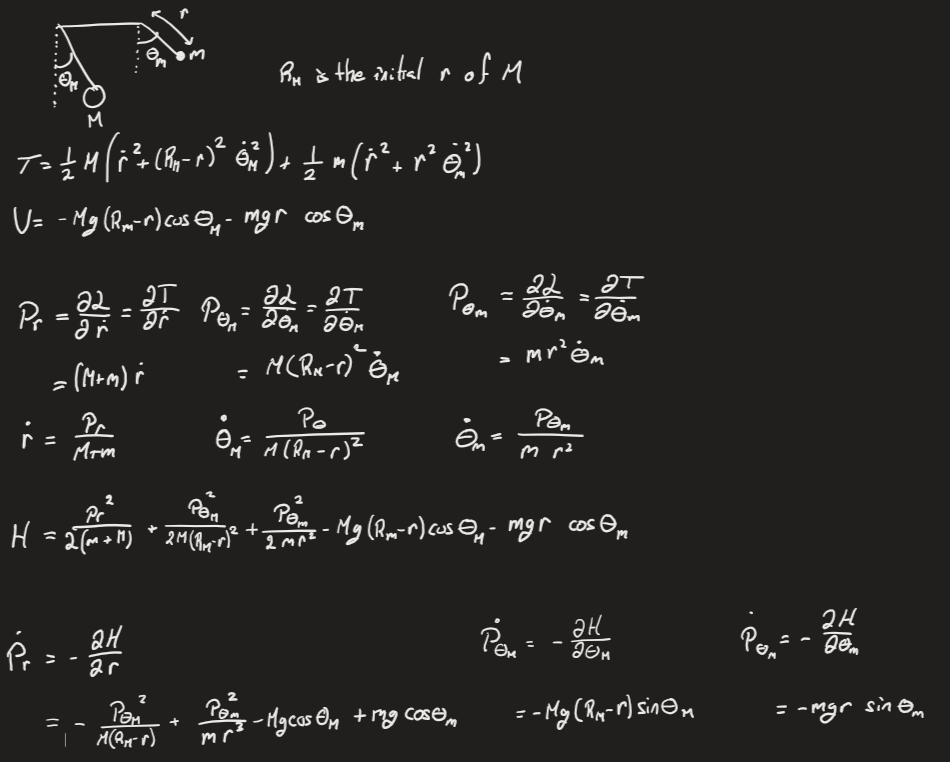 r
θ_M θ_m m
M
R_M is the initial r of M
T = 1/2 M (ṙ² + (R_M - r)² θ̇_M²) + 1/2 m (ṙ² + r² θ̇_m²)
U = - Mg (R_m - r) cos θ_M - mgr cos θ_m
P_r = ∂L/∂ṙ = ∂T/∂ṙ P_θ_M = ∂L/∂θ̇_M = ∂T/∂θ̇_M P_θ_m = ∂L/∂θ̇_m = ∂T/∂θ̇_m
= (M+m) ṙ = M(R_M - r)² θ̇_M = m r² θ̇_m
ṙ = P_r/(M+m) θ̇_M = P_θ/(M(R_M - r)²) θ̇_m = P_θ_m/(m r²)
H = P_r²/(2(m+M)) + P_θ_M²/(2M(R_M - r)²) + P_θ_m²/(2mr²) - Mg (R_m - r) cos θ_M - mgr cos θ_m
Ṗ_r = - ∂H/∂r Ṗ_θ_M = - ∂H/∂θ_M Ṗ_θ_m = - ∂H/∂θ_m
= - P_θ_M²/(M(R_M - r)) + P_θ_m²/(mr³) - Mg cos θ_M + mg cos θ_m = - Mg (R_M - r) sin θ_M = - mgr sin θ_m